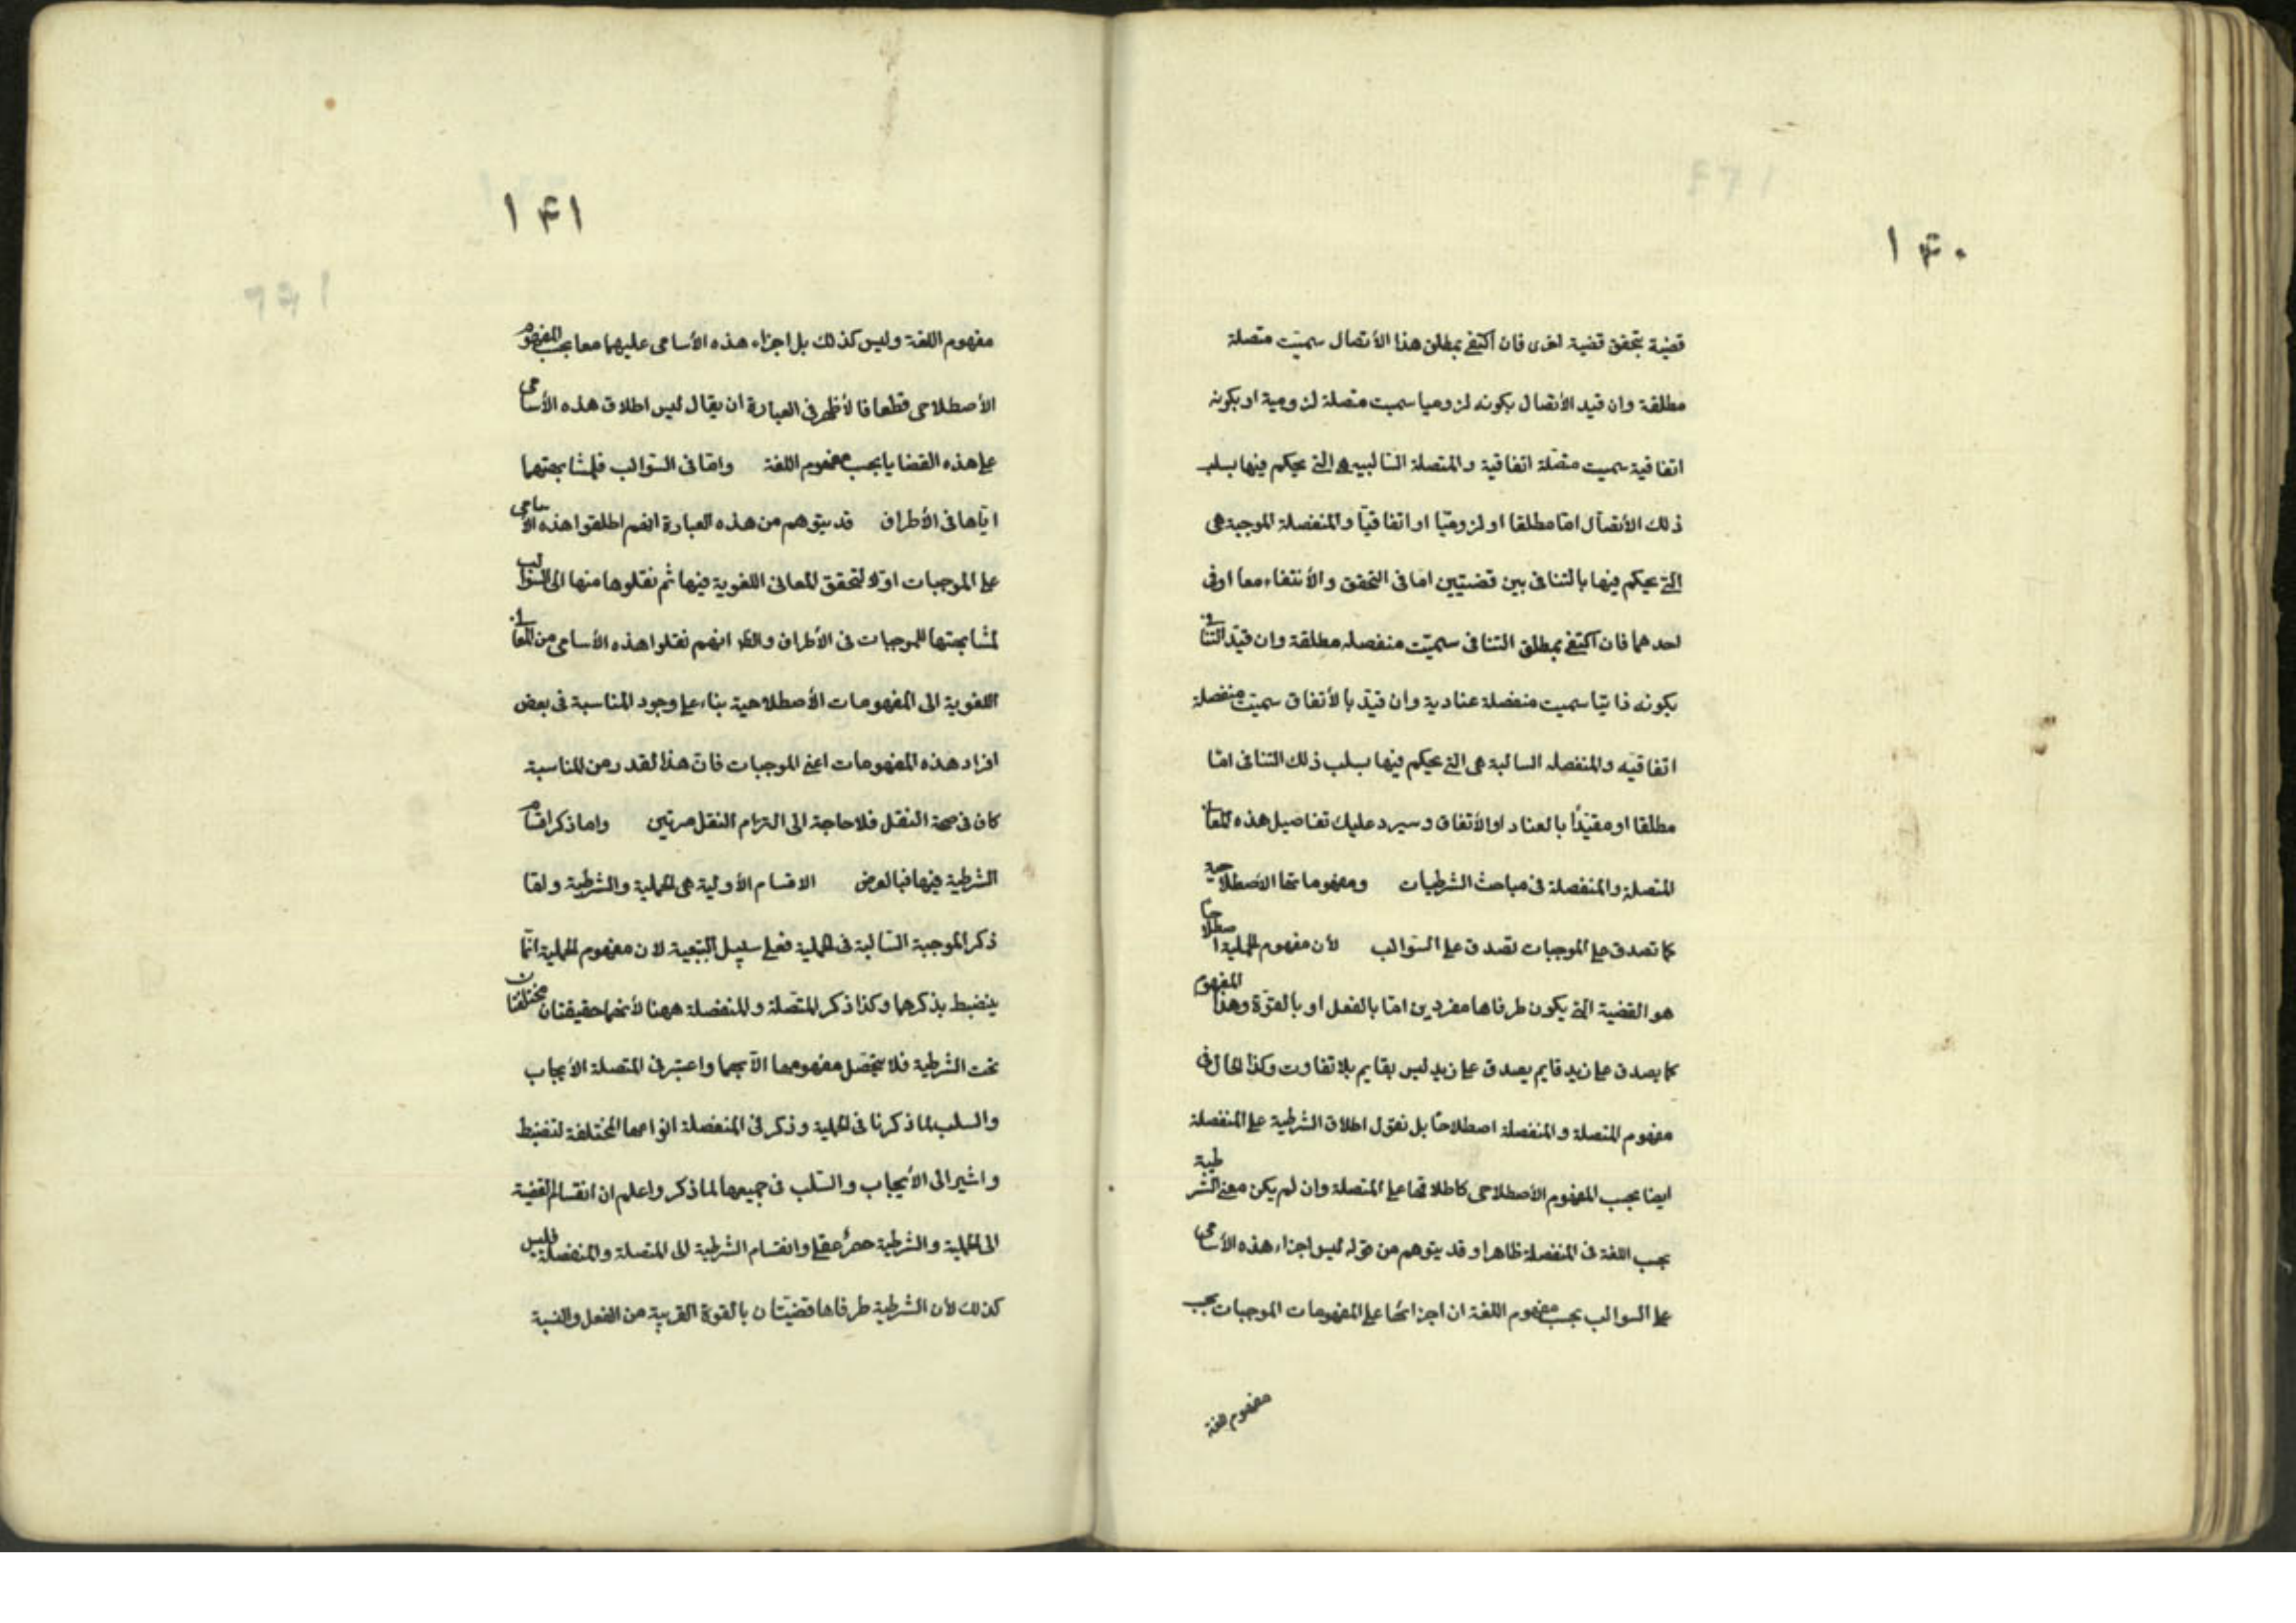 ١۴٠
قضية بتحقق قضية اخرى فان اكتفى بمطلق هذا الأتصال سميّت متصلة
مطلقة وان قيد الأتصال بكونه لزوميا سميت متصلة لزومية او بكونه
اتفاقية سميت متصلة اتفاقية والمتصلة السالبة هى التى يحكم فيها بسلب
ذلك الأتصال امّا مطلقا او لزوميّا او اتفاقيّا والمنفصلة الموجبة هى
التى يحكم فيها بالتنافى بين قضيتين امّا فى التحقق والأنتفاء معا او فى
احدهما فان اكتفى بمطلق التنافى سميّت منفصله مطلقة وان قيّد التنافى
بكونه ذاتيّا سميت منفصلة عنادية وان قيّد بالأتفاق سميت منفصلة
اتفاقيه والمنفصله السالبة هى التى يحكم فيها بسلب ذلك التنافى امّا
مطلقا او مقيّدًا بالعناد او الأتفاق وسيرد عليك تفاصيل هذه المعانى
المتصلة والمنفصلة فى مباحث الشرطيات ومفهوماتها الأصطلاحية
كما تصدق على الموجبات تصدق على السّوالب لأن مفهوم الحملية اصطلاحا
هو القضية التى يكون طرفاها مفردين امّا بالفعل او بالقوّة وهذا المفهوم
كما يصدق على زيد قايم يصدق على زيد ليس بقايم بلا تفاوت وكذا الحال فى
مفهوم المتصلة والمنفصلة اصطلاحًا بل نقول اطلاق الشرطية على المنفصلة
ايضا بحسب المفهوم الأصطلاحى كاطلاقها على المتصلة وان لم يكن معنى الشرطية
بحسب اللغة فى المنفصلة ظاهرا وقد يتوهم من قوله ليس اجراء هذه الأسامى
على السوالب بحسب مفهوم اللغة ان اجرائها على المفهومات الموجبات بحسب
مفهوم اللغة
١۴١
مفهوم اللغة وليس كذلك بل اجراء هذه الأسامى عليهما معا بحسب المفهوم
الأصطلاحى قطعا فالأظهر فى العبارة ان يقال ليس اطلاق هذه الأسامى
على هذه القضايا بحسب مفهوم اللغة وامّا فى السّوالب فلمشابهتها
ايّاها فى الأطراف قد يتوهم من هذه العبارة انهم اطلقوا هذه الأسامى
على الموجبات اوّلا لتحقق المعانى اللغوية فيها ثم نقلوها منها الى السّوالب
لمشابهتها للموجبات فى الأطراف والظ انهم نقلوا هذه الأسامى من المعانى
اللغوية الى المفهومات الأصطلاحية بناء على وجود المناسبة فى بعض
افراد هذه المفهومات اعنى الموجبات فانّ هذا القدر من المناسبة
كان فى صحة النقل فلا حاجة الى التزام النقل مرتين واما ذكر اقسام
الشرطية فيها فبالعرض الاقسام الأولية هى الحملية والشرطية وامّا
ذكر الموجبة السّالبة فى الحملية فعلى سبيل التبعية لان مفهوم الحملية انّما
ينضبط بذكرهما وكذا ذكر المتّصلة والمنفصلة ههنا لأنهما حقيقتان مختلفتان
تحت الشرطية فلا يتحصّل مفهومها الّا بهما واعتبر فى المتصلة الأيجاب
والسلب لما ذكرنا فى الحملية وذكر فى المنفصلة انواعها المختلفة لتنضبط
واشير الى الأيجاب والسّلب فى جميعها لما ذكر واعلم ان انقسام القضية
الى الحملية والشرطية حصرٌ عقلى وانقسام الشرطية الى المتصلة والمنفصلة فليس
كذلك لأن الشرطية طرفاها قضيّتان بالقوة القريبة من الفعل والنسبة